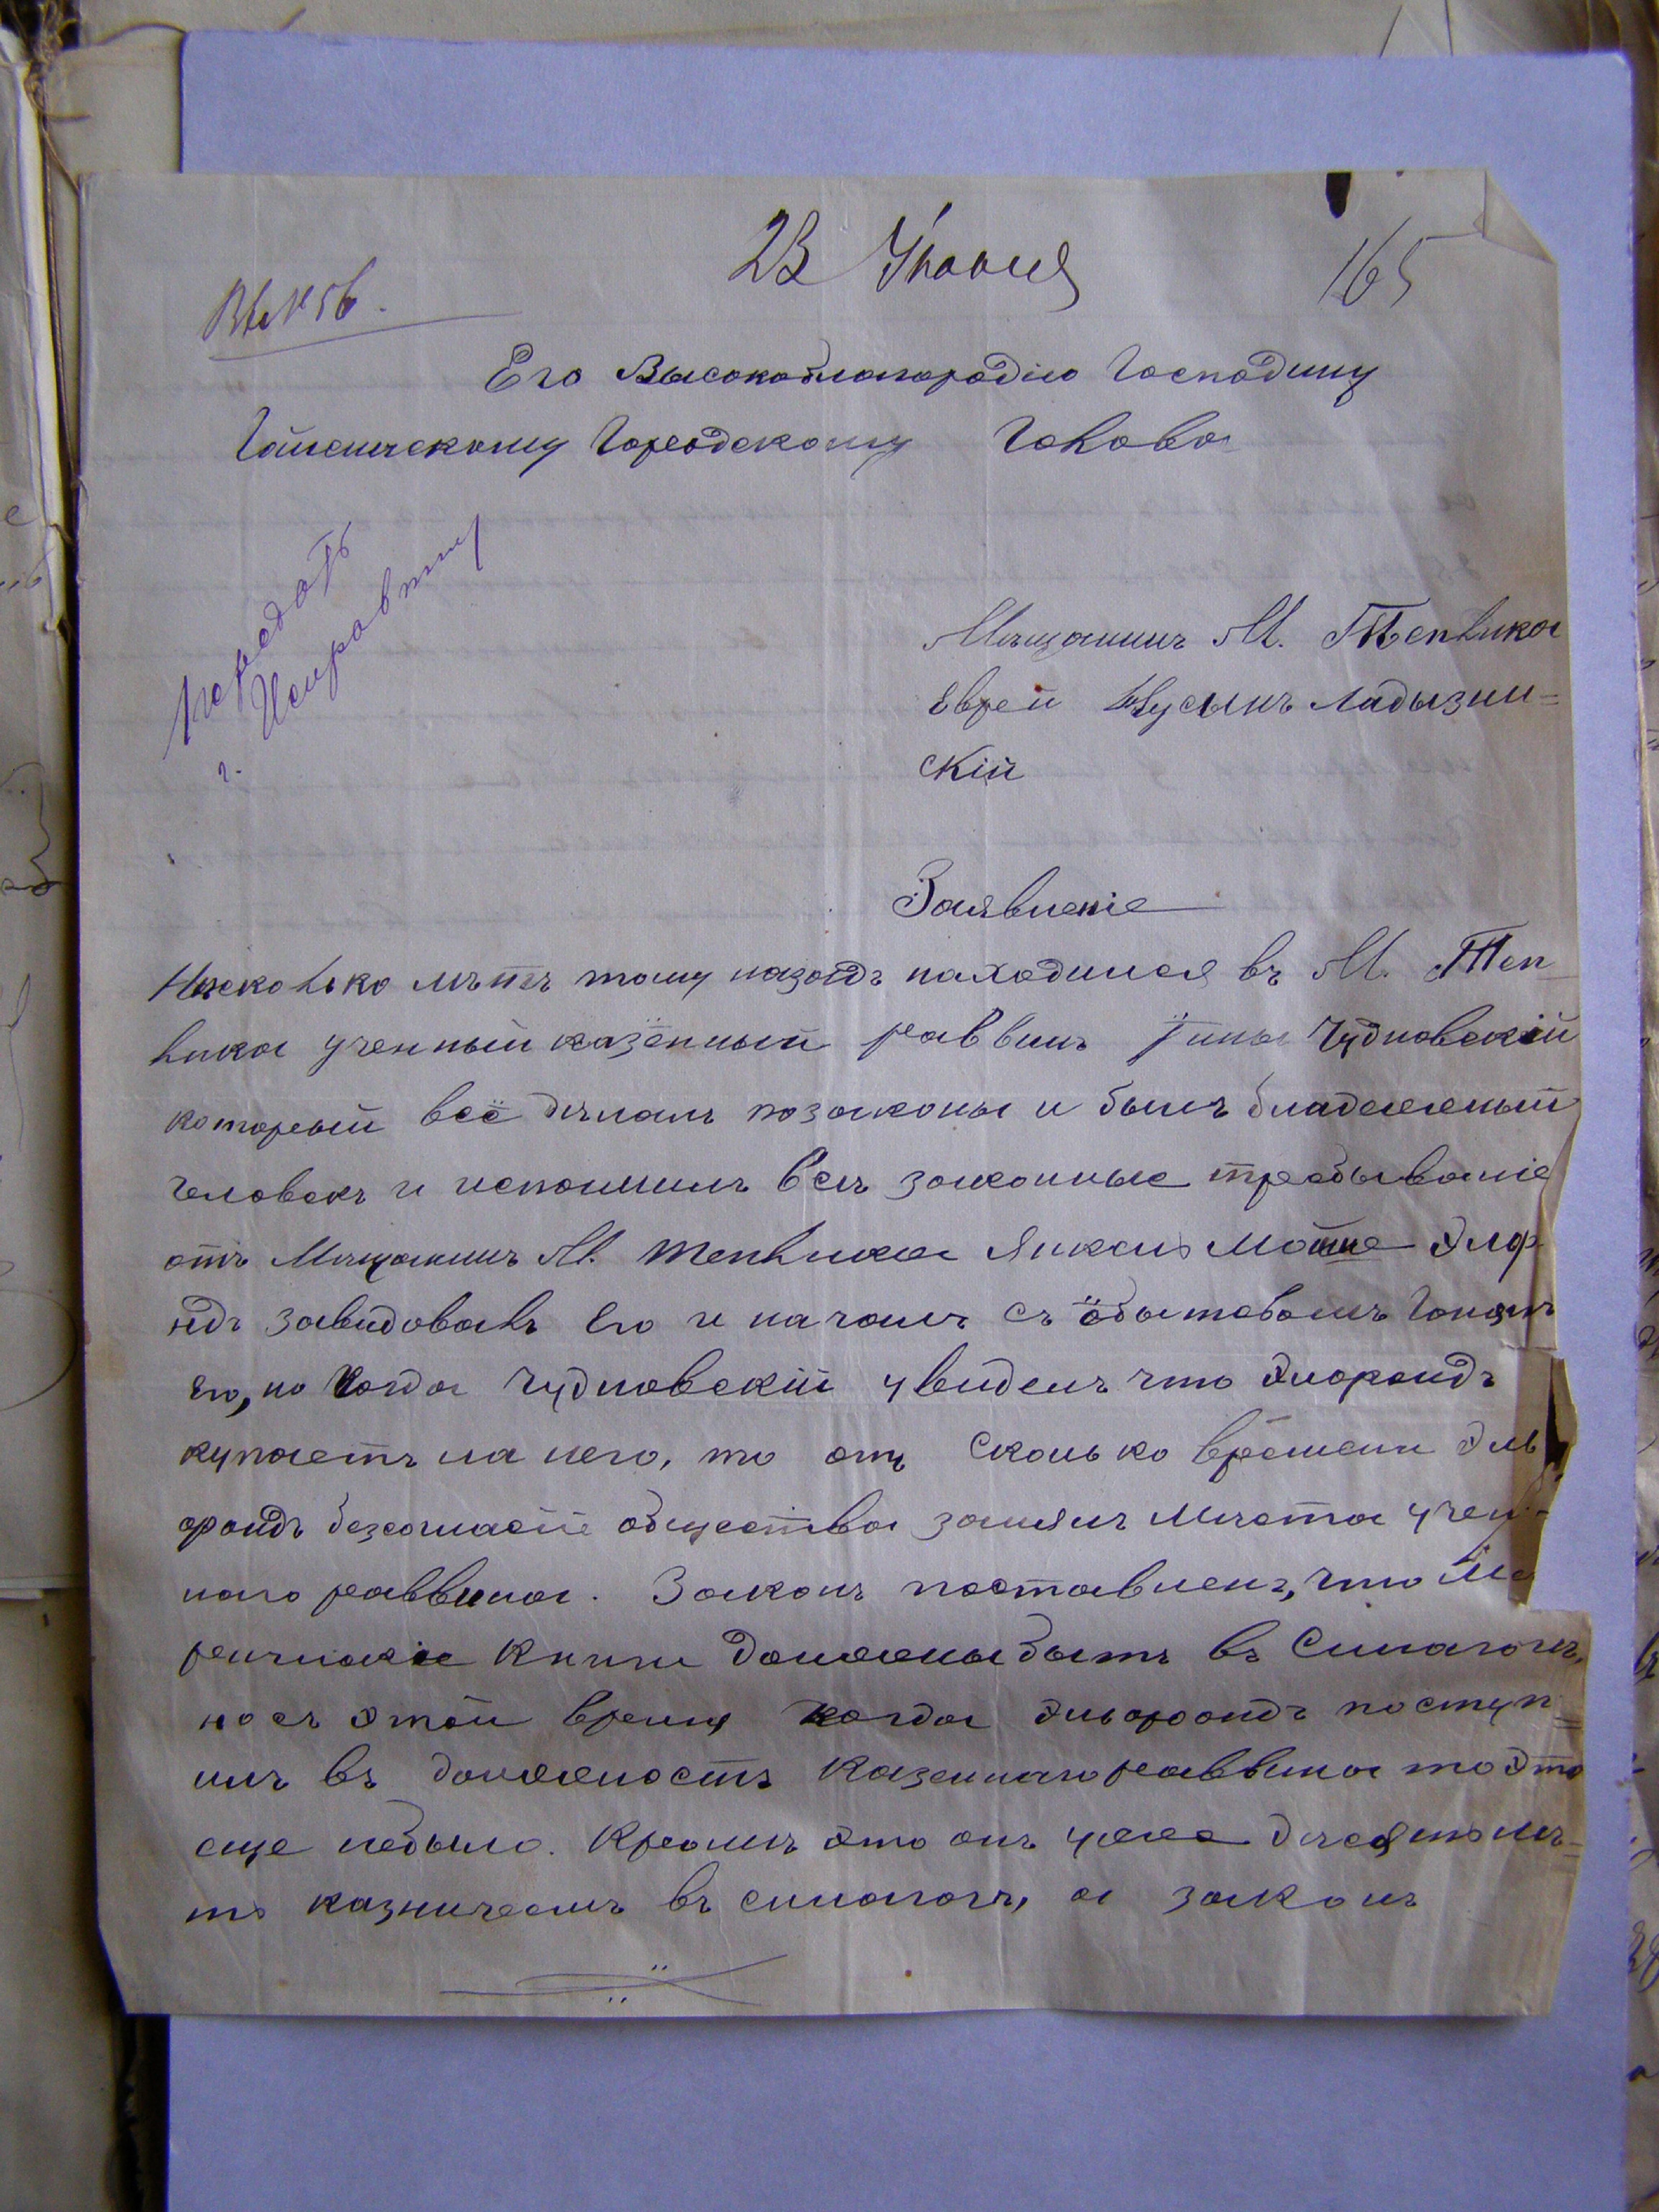 23 Іюля
165
Его Высокоблагородію Господину
Гайсинскому Городскому Голова
передать
г. Исправнику
Мещанинъ М. Теплика
Еврей Нусынъ Ладызин=
скій
Заявленіе
Несколько летъ тому назадъ находился въ М. Теп
лика ученный казённый раввинъ Чудновскій
который всё делалъ позаконы и былъ благадежный
человекъ и исполнилъ всѣ законные требываніе
отъ Мещанинъ М. Теплика Янкель Мошко Элф
ндъ завидовалъ Его и началъ съ Гонят
его, но когда Чудновскій увиделъ что Элфандъ
купаетъ на него, то отъ сколько времени Эль
фандъ безсогласіе общества занялъ Места учен-
наго раввина. Законъ поставленъ, что Ме
рическіе Книги должны быть въ Синагоги,
но съ этой время когда Эльфандъ поступ=
илъ въ должность Казеннаго раввина то Это
еще небыло. Кромѣ это онъ уже десять ле=
тъ казничеемъ въ синагоги, а законъ